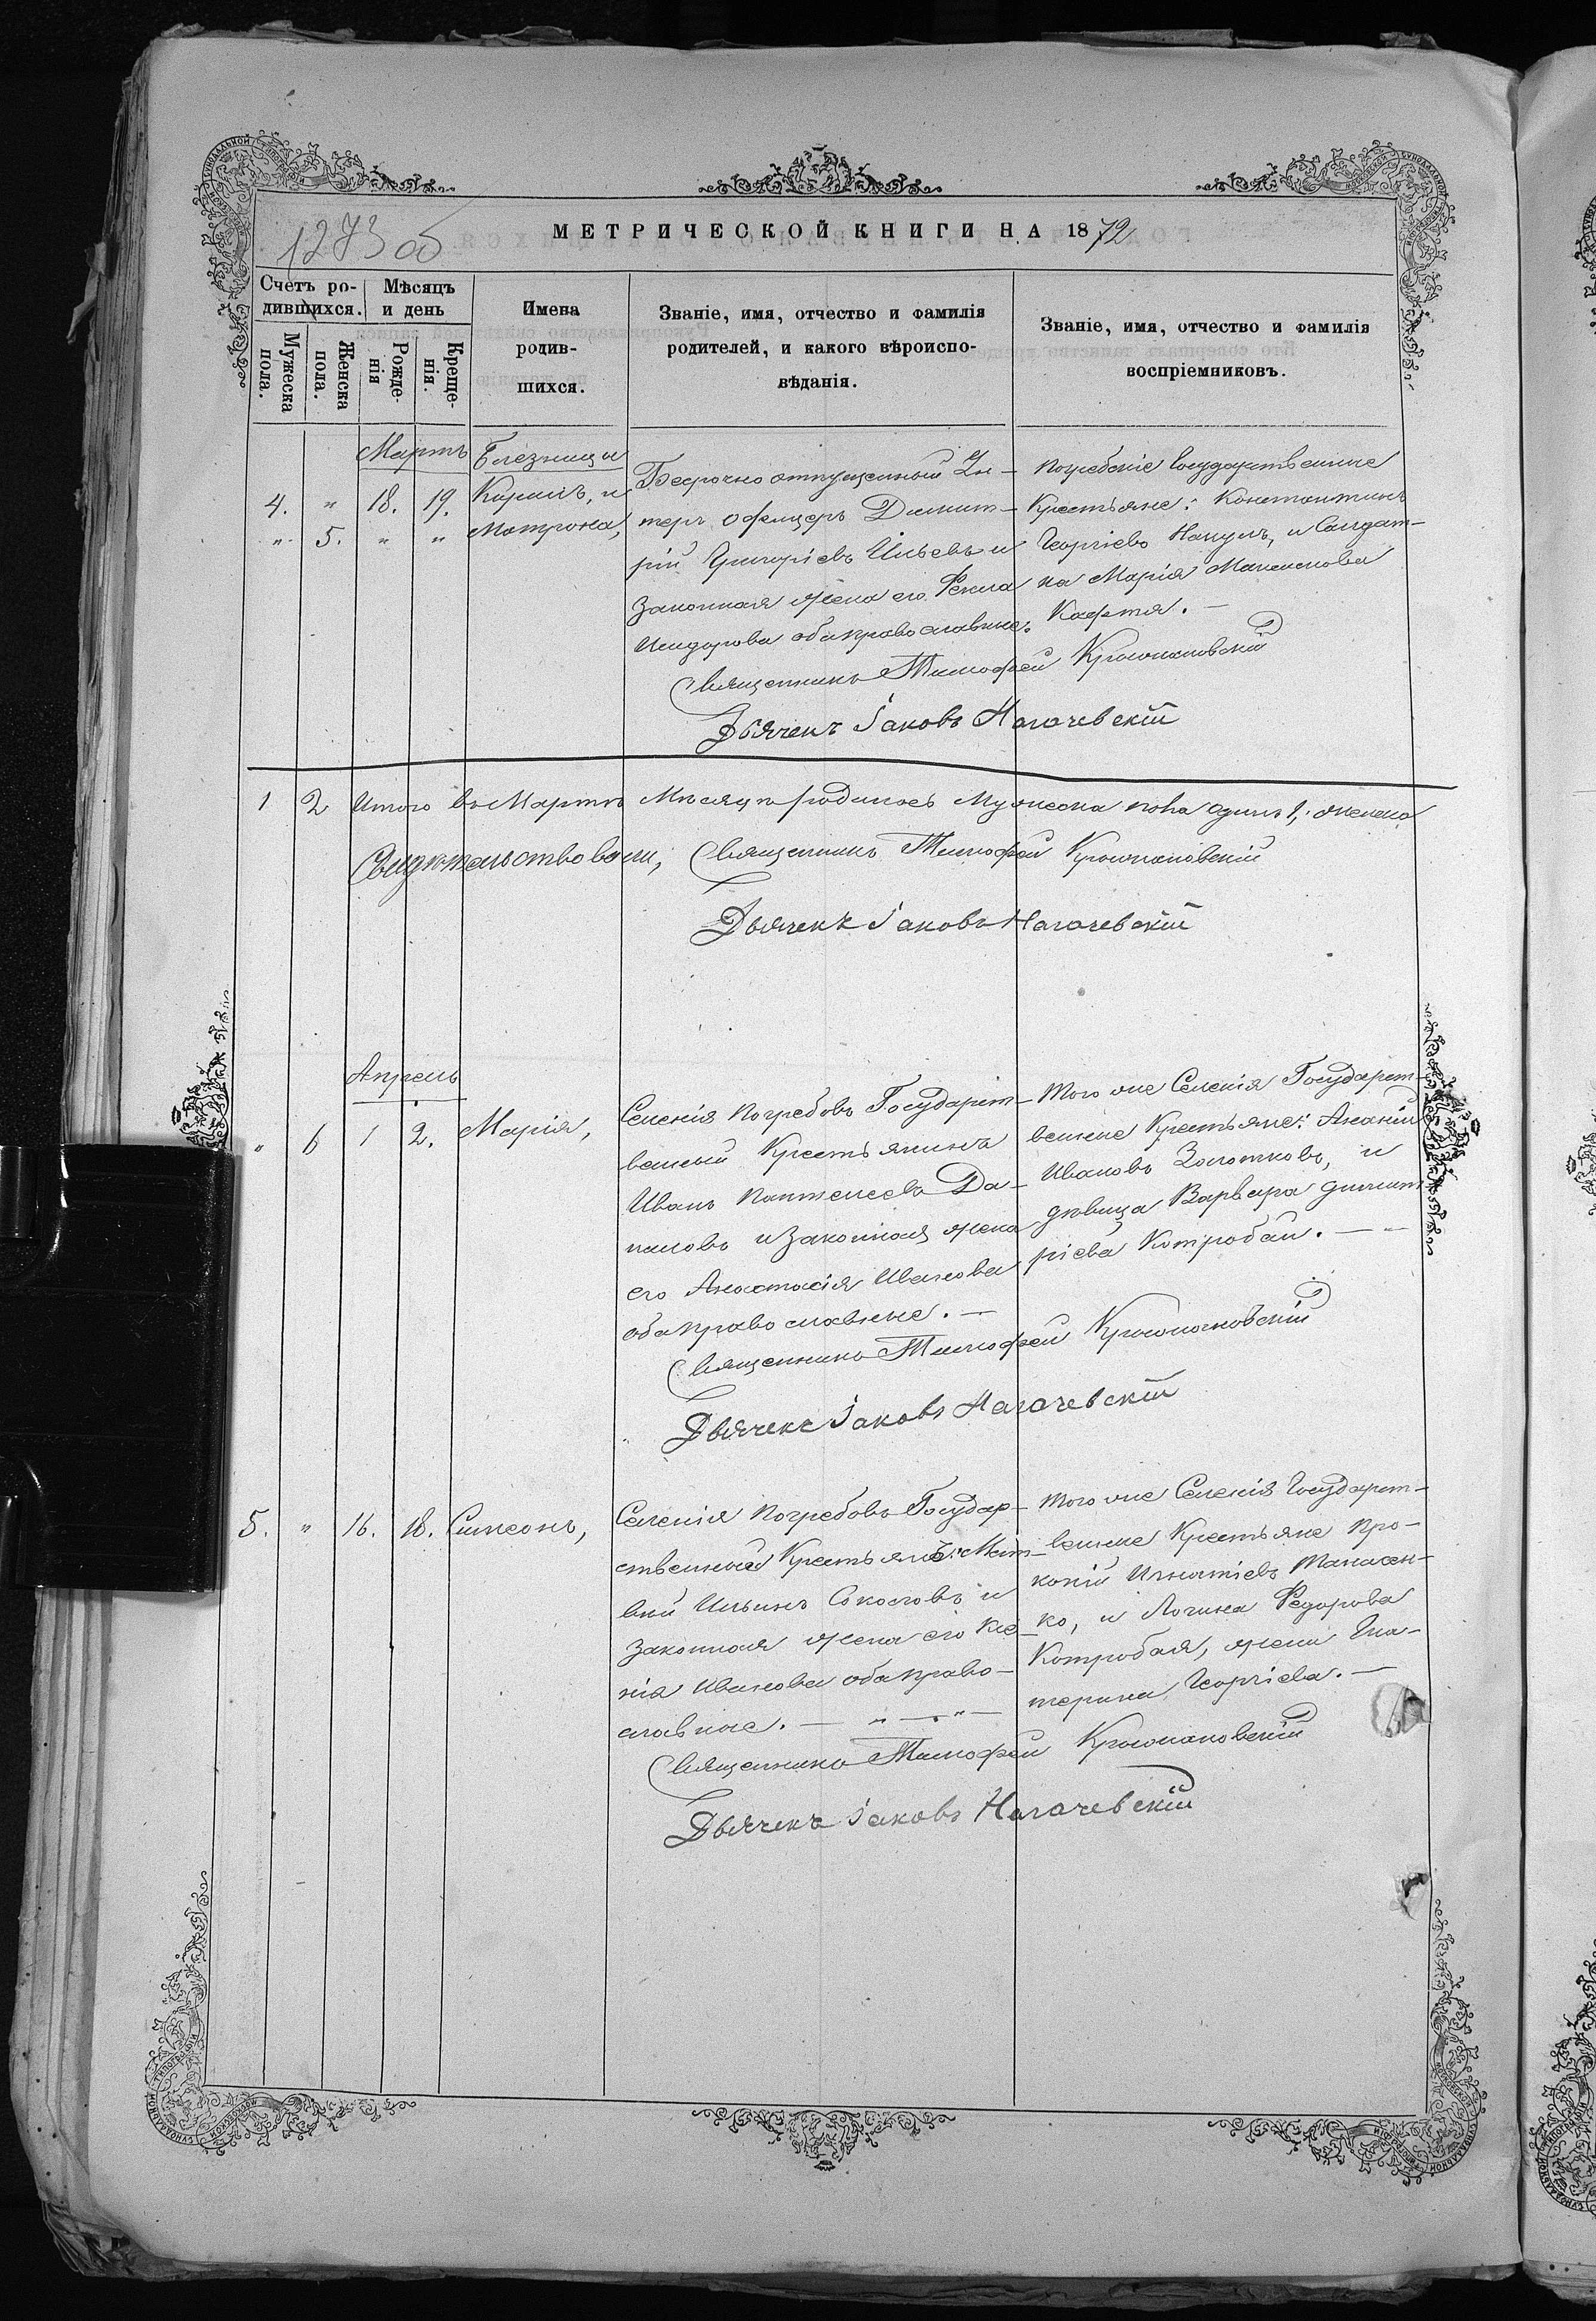 1273 об
МЕТРИЧЕСКОЙ КНИГИ НА 1872
Счетъ ро-
дившихся.
Мѣсяцъ
и день
Мужеска
пола.
Женска
пола.
Рожде-
нія
Креще-
нія.
Имена
родив-
шихся.
Званіе, имя, отчество и фамилія
родителей, и какого вѣроиспо-
вѣданія.
Званіе, имя, отчество и фамилія
воспріемниковъ.
Мартъ
Близнецы
4. " 18. 19. Кирилъ, и
" 5. " " Матрона,
Безсрочно отпущенный Ун-
теръ офицеръ Димит-
рій Григоріевъ Ильевъ и
законная жена его Фекла
Исидорова оба православные.
Погребскіе Государственные
Крестьяне: Константинъ
Георгіевъ Нагулъ, и Солдат-
ка Марія Максимова
Кафтя. —
Священникъ Тимофей
Дьячекъ Іаковъ Нагачевскій
1 2 Итого въ Мартѣ Мѣсяцѣ родилось Мужеска пола одинъ 1, женска
Свидѣтельствовали, Священникъ Тимофей
Дьячекъ Іаковъ Нагачевскій
Апрель
" 6 1 2. Марія,
Селенія Погребовъ Государст-
венный Крестьянинъ
Иванъ Пантелеевъ Да-
ниловъ и законная жена
его Анастасія Иванова
оба православные. —
Того же Селенія Государст-
венные Крестьяне: Ананій
Ивановъ Золотковъ, и
дѣвица Варвара Димит-
ріева Котробай. —
Священникъ Тимофей
Дьячекъ Іаковъ Нагачевскій
5. " 16. 18. Симеонъ,
Селенія Погребовъ Государ-
ственный Крестьян: Мат-
вій Ильинъ Соколовъ и
законная жена его Ксе-
нія Иванова оба право-
славные. — " — " —
Того же Селенія Государст-
венные Крестьяне Про-
копій Игнатіевъ Танасен-
ко, и Логина Федорова
Котробая, жена Ека-
терина Георгіева. —
Священникъ Тимофей
Дьячекъ Іаковъ Нагачевскій